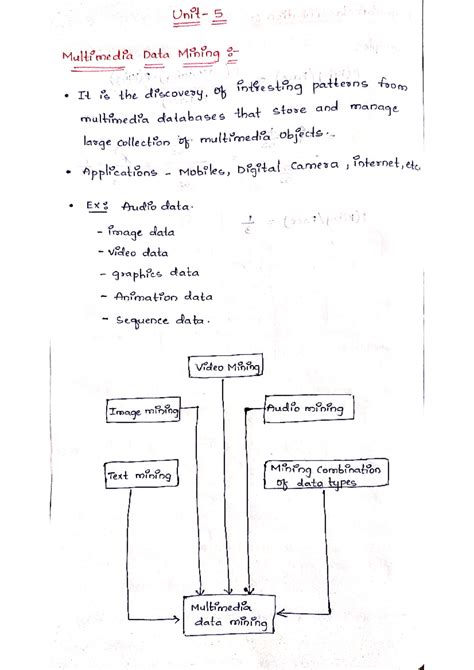 Unit- 5
Multimedia Data Mining :-
• It is the discovery, of intresting patterns from
multimedia databases that store and manage
large collection of multimedia objects.
• Applications - Mobiles, Digital Camera, internet, etc
• Ex: Audio data.
- image data
- Video data
- graphics data
- Animation data
- Sequence data.
Video Mining
Image mining
Audio mining
Text mining
Mining Combination
of data types
Multimedia
data mining